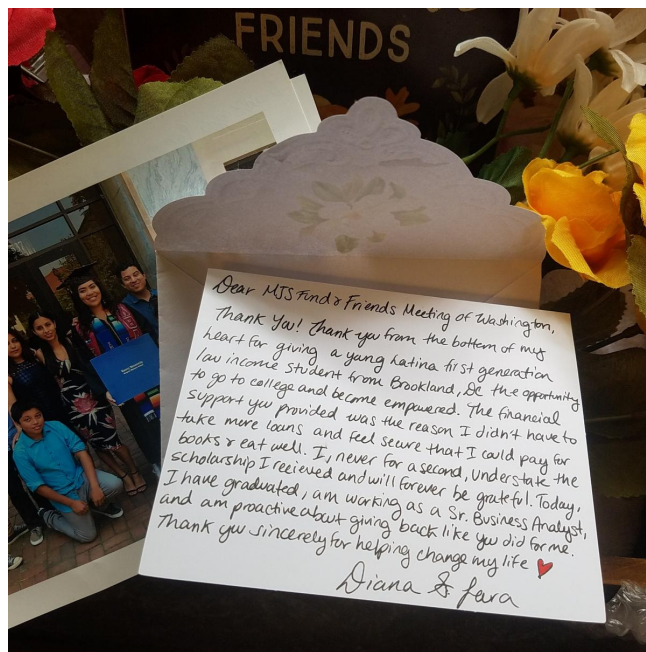 FRIENDS
Dear MJS Fund & Friends Meeting of Washington,
Thank You! Thank you from the bottom of my
heart for giving a young Latina first generation
low income student from Brookland, DC the opportunity
to go to college and become empowered. The financial
support you provided was the reason I didn't have to
take more loans and feel secure that I could pay for
books & eat well. I, never for a second, understate the
scholarship I recieved and will forever be grateful. Today,
I have graduated, am working as a Sr. Business Analyst,
and am proactive about giving back like you did for me.
Thank you sincerely for helping change my life
Diana